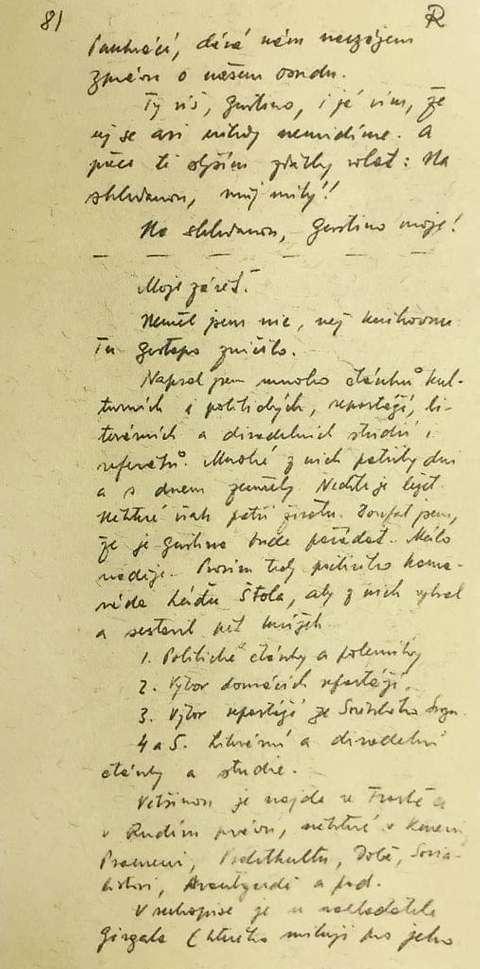 81 R
Pankráci, dává nám navzájem
zprávu o našem osudu.
Ty víš, Gustino, i já vím, že
už se asi nikdy neuvidíme. A
přece tě slyším zdálky volat: Na
shledanou, můj milý!
Na shledanou, Gustino moje!
Moje závěť.
Neměl jsem nic, než knihovnu.
Tu gestapo zničilo.
Napsal jsem mnoho článků kul-
turních i politických, reportáží, li-
terárních a divadelních studií i
referátů. Mnohé z nich patřily dni
a s dnem zemřely. Nechte je ležet.
Některé však patří životu. Doufal jsem,
že je Gustina bude pořádat. Málo
naděje. Prosím tedy poctivého kama-
ráda Láďu Štolla, aby z nich vybral
a sestavil pět knížek
1. Politické články a polemiky
2. Výbor domácích reportáží.
3. Výbor reportáží ze Sovětského Svazu.
4 a 5. Literární a divadelní
články a studie.
Většinou je najde v Tvorbě a
v Rudém právu, některé v Kmeni,
Prameni, Proletkultu, Době, Socia-
listovi, Avantgardě a pod.
V rukopise je u nakladatele
Girgala (kterého miluji pro jeho